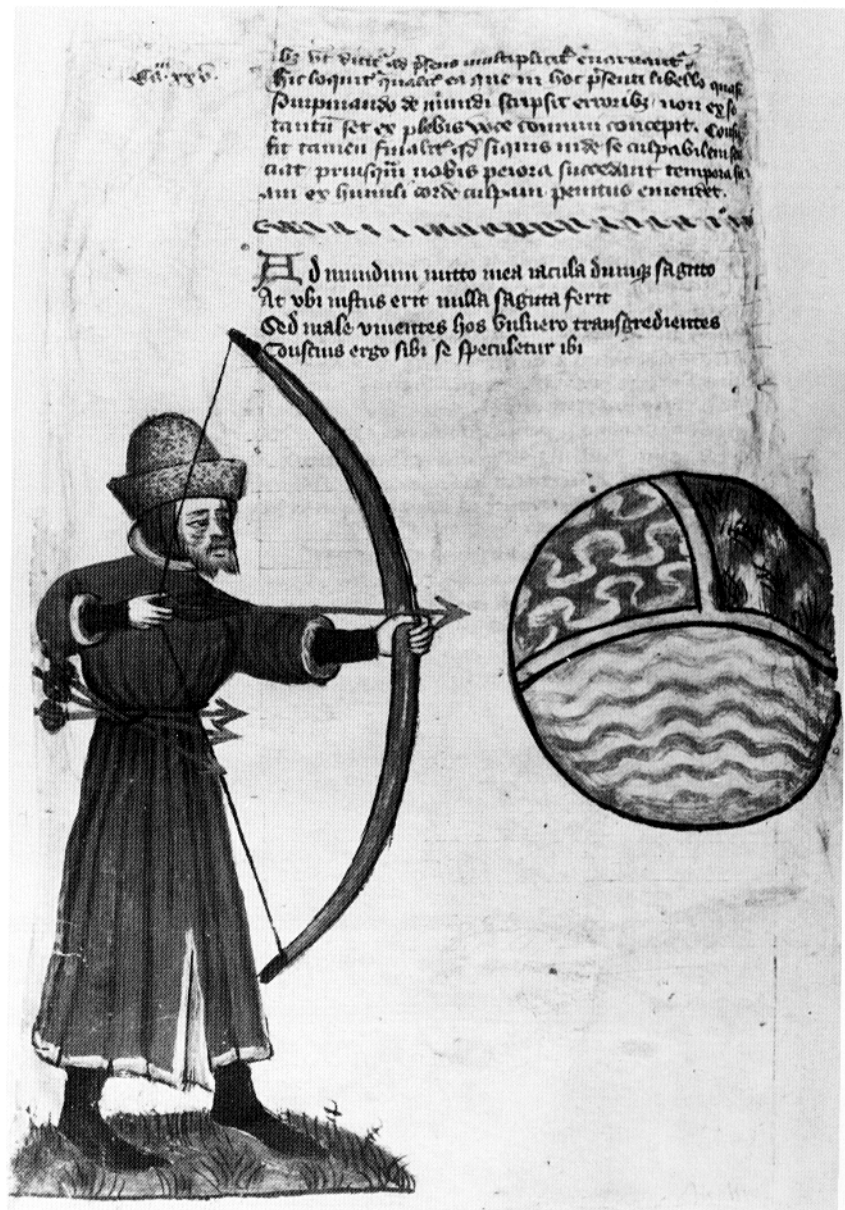 Ca.m xxv.
bꝫ vt dicit᷑ ad p̄sens multiplicit᷑ enarrant᷑
Hic loquit᷑ qualit᷑ ea que in hoc p̄senti libello quasi
Sompniando de mūdi scripsit erroribꝫ non ex se
tantū set ex plebis voce comuni concepit. Consu
lit tamen finalit᷑ qd̄ siquis inde se culpabilem sen
ciat priusqm̄ nobis peiora succedant tempora su
am ex humili corde culpam penitus emendet.
Ad mundum mitto mea iacula dumqꝫ sagitto
At vbi iustus erit nulla sagitta ferit
Sed male viuentes hos vulnero transgredientes
Conscius ergo sibi se speculetur ibi